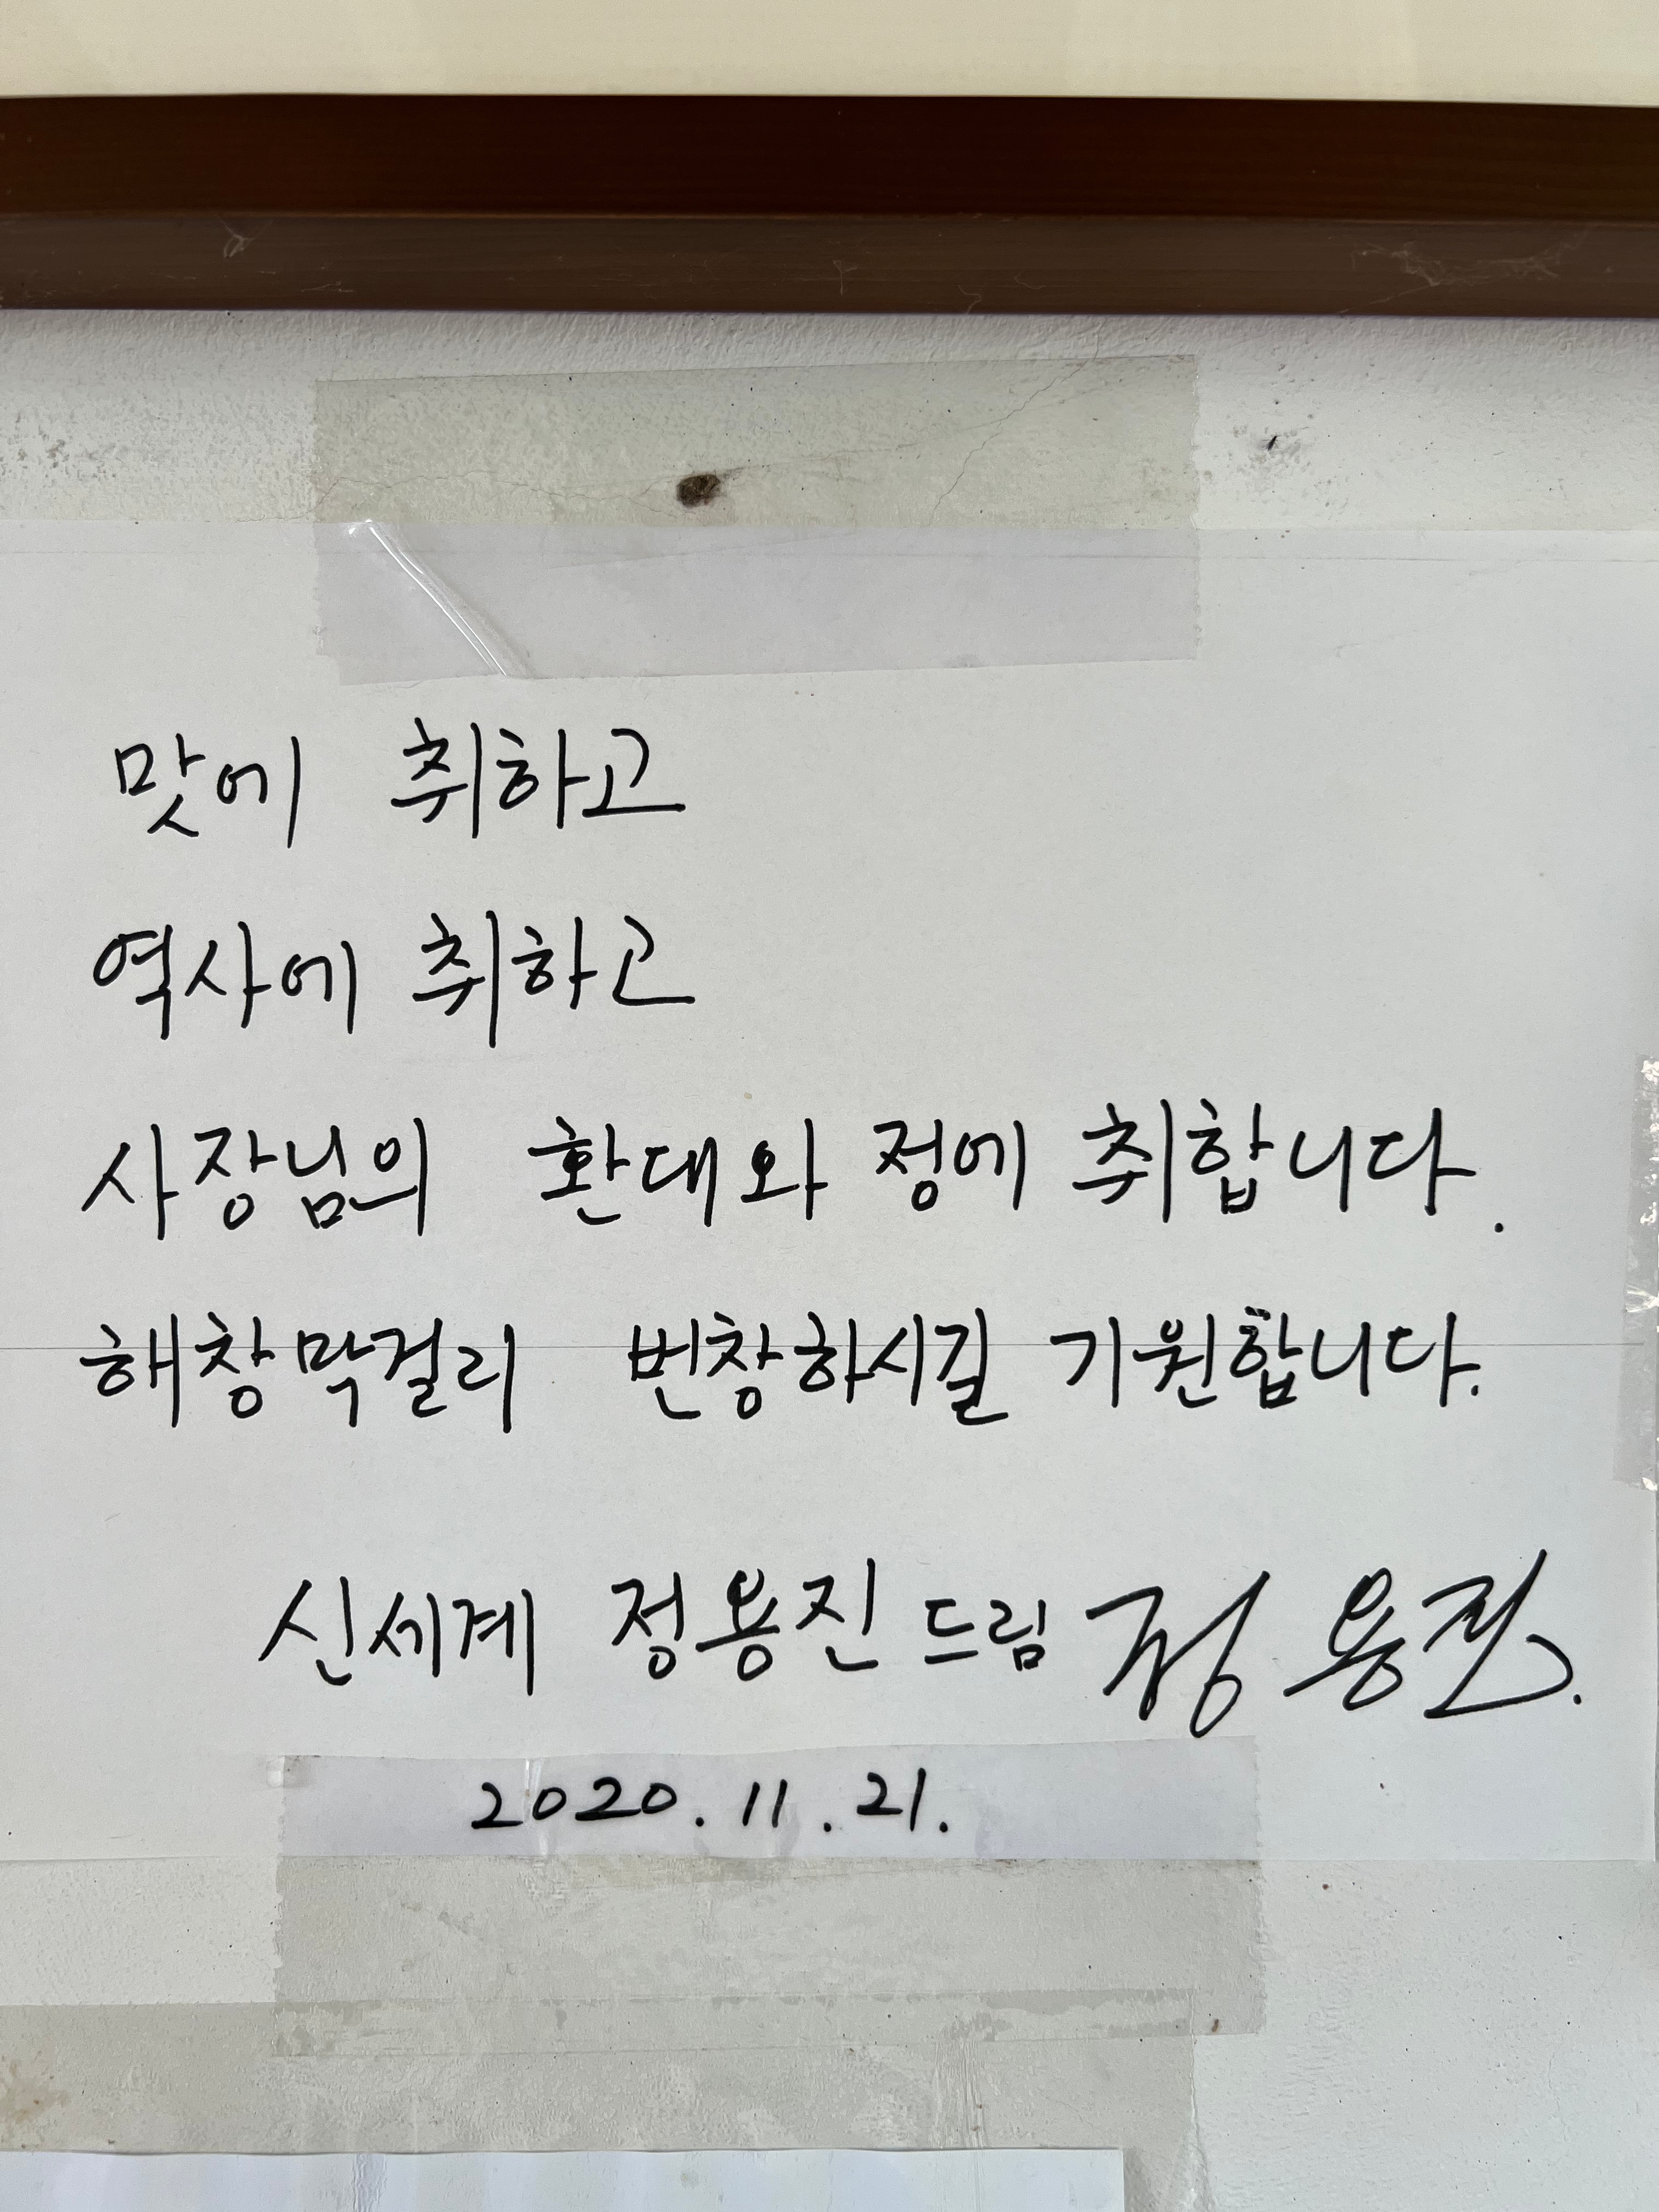 맛에 취하고
역사에 취하고
사장님의 환대와 정에 취합니다.
해창막걸리 번창하시길 기원합니다.
신세계 정용진 드림 정용진.
2020. 11. 21.